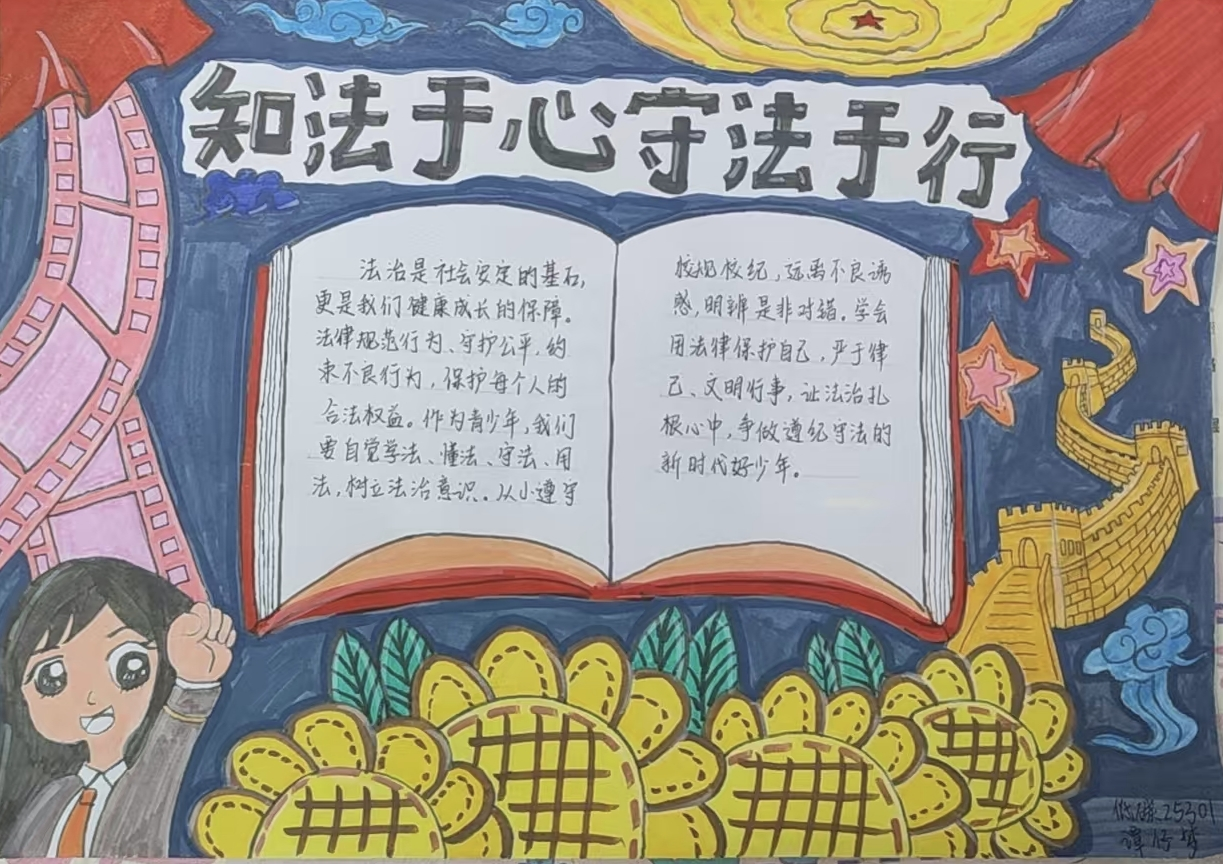 知法于心守法于行
法治是社会安定的基石,
更是我们健康成长的保障。
法律规范行为、守护公平,约
束不良行为,保护每个人的
合法权益。作为青少年,我们
要自觉学法、懂法、守法、用
法,树立法治意识。从小遵守
校规校纪,远离不良诱
惑,明辨是非对错。学会
用法律保护自己,严于律
己、文明行事,让法治扎
根心中,争做遵纪守法的
新时代好少年。
25301